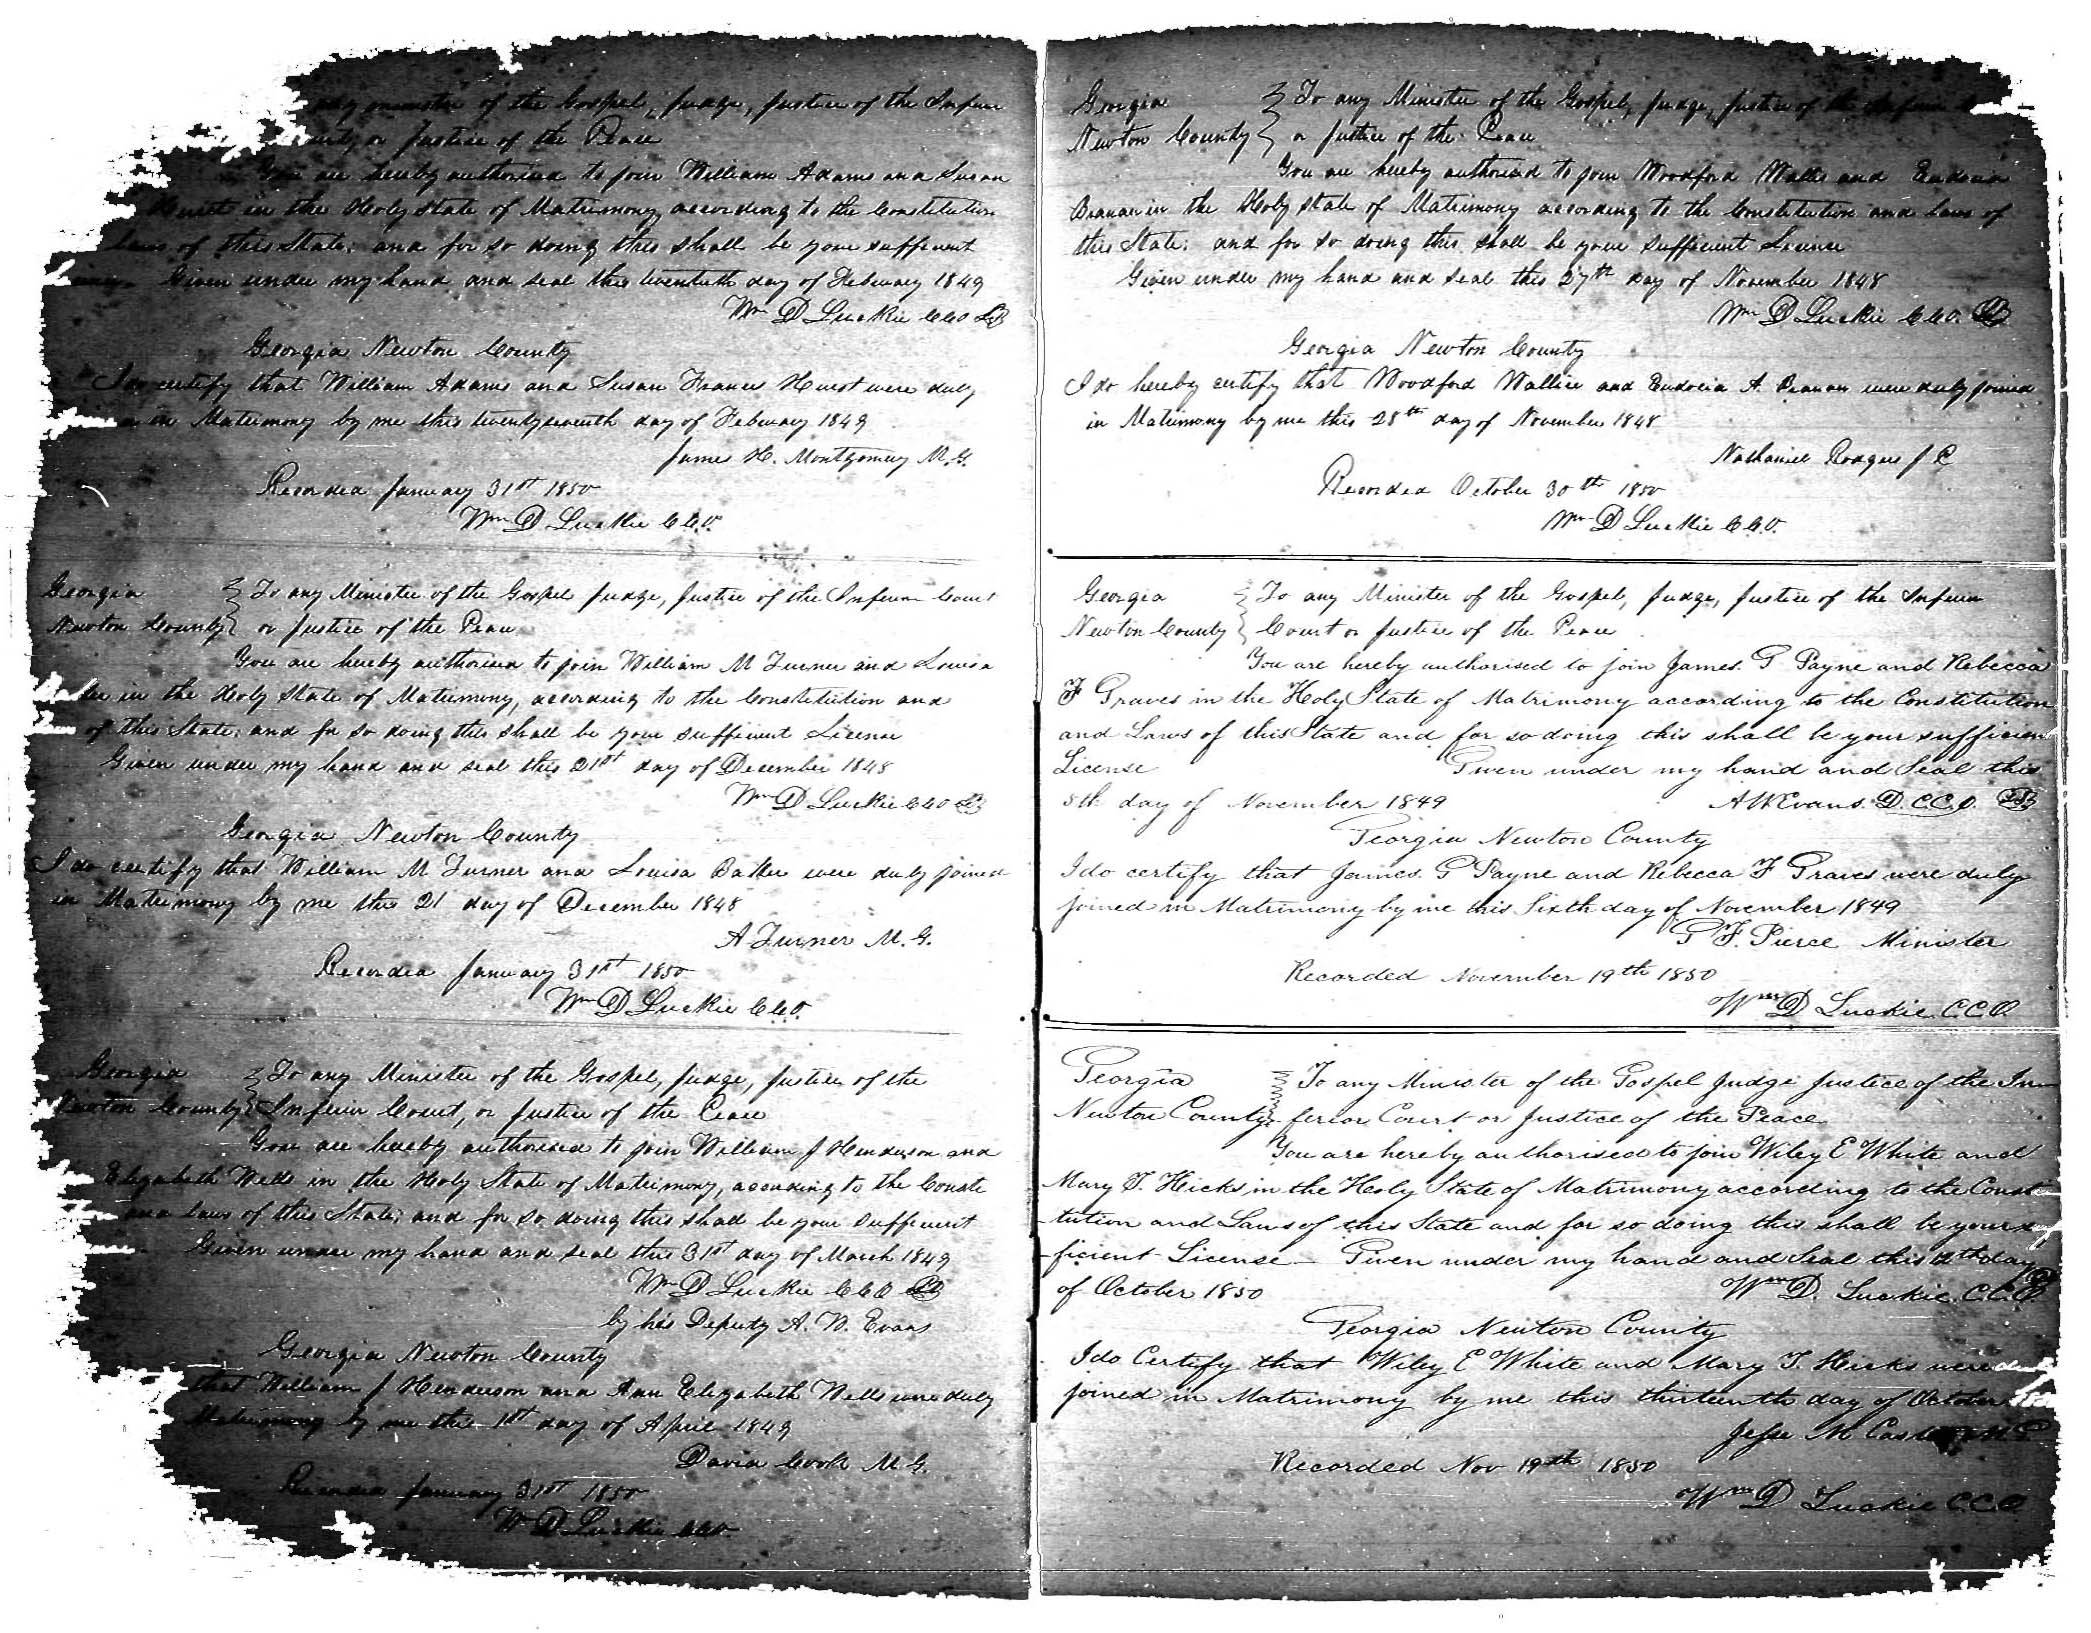 any minister of the Gospel, Judge, Justice of the Inferior
or Justice of the Peace
You are hereby authorised to join William Adams and Susan
Hurst in the Holy State of Matrimony, according to the Constitution
Laws of this State; and for so doing this shall be your sufficient
Given under my hand and seal this twentieth day of February 1849
Wm D Luckie C C O LS
Georgia Newton County
I do certify that William Adams and Susan Frances Hurst were duly
in Matrimony by me this twenty seventh day of February 1849
James H. Montgomery M.G.
Recorded January 31st 1850
Wm D Luckie C.C.O.
Georgia } To any Minister of the Gospel Judge, Justice of the Inferior Court
Newton County } or Justice of the Peace
You are hereby authorised to join William M Turner and Louisa
in the Holy State of Matrimony, according to the Constitution and
of this State; and for so doing this shall be your sufficient License
Given under my hand and seal this 21st day of December 1848
Wm D Luckie C C O LS
Georgia Newton County
I do certify that William M Turner and Louisa were duly joined
in Matrimony by me this 21 day of December 1848
A Turner M.G.
Recorded January 31st 1850
Wm D Luckie C.C.O.
Georgia } To any Minister of the Gospel, Judge, Justice of the
Newton County } Inferior Court, or Justice of the Peace
You are hereby authorised to join William J Henderson and
Elizabeth Wells in the Holy State of Matrimony, according to the Consti
and Laws of this State; and for so doing this shall be your sufficient
Given under my hand and seal this 31st day of March 1849
Wm D Luckie C C O LS
by his Deputy A. W. Evans
Georgia Newton County
that William J Henderson and Ann Elizabeth Wells were duly
Matrimony by me this 1st day of April 1849
David Cook M.G.
Recorded January 31st 1850
W D Luckie C.C.O.
Georgia } To any Minister of the Gospel, Judge, Justice of the Inferior
Newton County } or Justice of the Peace
You are hereby authorised to join Woodford and Eudocia
in the Holy State of Matrimony according to the Constitution and Laws of
this State; and for so doing this shall be your sufficient License
Given under my hand and seal this 27th day of November 1848
Wm D Luckie C.C.O. LS
Georgia Newton County
I do hereby certify that Woodford and Eudocia A. were duly joined
in Matrimony by me this 28th day of November 1848
Nathaniel Rodgers J P
Recorded October 30th 1850
Wm D Luckie C.C.O.
Georgia } To any Minister of the Gospel, Judge, Justice of the Inferior
Newton County } Court or Justice of the Peace
You are hereby authorised to join James. G Payne and Rebecca
F Graves in the Holy State of Matrimony according to the Constitution
and Laws of this State and for so doing this shall be your sufficient
License Given under my hand and Seal this
5th day of November 1849 A W Evans. D.C.C.O. LS
Georgia Newton County
I do certify that James. G Payne and Rebecca F Graves were duly
joined in Matrimony by me this Sixth day of November 1849
G F. Pierce Minister
Recorded November 19th 1850
Wm D Luckie C.C.O
Georgia } To any Minister of the Gospel Judge Justice of the In-
Newton County } ferior Court or Justice of the Peace
You are hereby authorised to join Wiley E White and
Mary T. Hicks in the Holy State of Matrimony according to the Consti
tution and Laws of this State and for so doing this shall be your suf
ficient License — Given under my hand and Seal this day
of October 1850 Wm D. Luckie. C.C.O.
Georgia Newton County
I do Certify that Wiley E White and Mary T. Hicks were duly
joined in Matrimony by me this thirteenth day of October 1850
Jesse M
Recorded Nov 19th 1850
Wm D Luckie C.C.O.